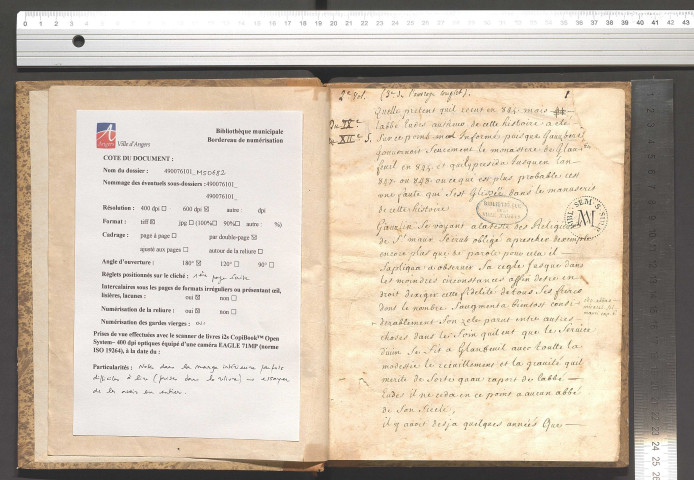 Angers
Ville d'Angers
Bibliothèque municipale
Bordereau de numérisation
COTE DU DOCUMENT :
Nom du dossier : 490076101_MS0682
Nommage des éventuels sous-dossiers :490076101_
490076101_
Résolution : 400 dpi ☐ 600 dpi ☒ autre : dpi
Format : tiff ☒ jpg ☐ (100% ☐ 90% ☐ autre : %)
Cadrage : page à page ☐ par double-page ☒
ajusté aux pages ☐ autour de la reliure ☐
Angle d'ouverture : 180° ☒ 120° ☐ 90° ☐
Réglets positionnés sur le cliché : 1ère page
Intercalaires sous les pages de formats irréguliers ou présentant œil,
lisières, lacunes : oui ☒ non ☐
Numérisation de la reliure : oui ☒ non ☐
Numérisation des gardes vierges : oui
Prises de vue effectuées avec le scanner de livres i2s CopiBook™ Open
System– 400 dpi optiques équipé d'une caméra EAGLE 71MP (norme
ISO 19264), à la date du :
Particularités : Notes dans la marge intérieure parfois
difficiles à lire (prises dans la reliure) : essayer
de les avoir en entier.
2e vol. (3e de l'ouvrage complet). 1
Du IXe
XIIe S.
quelle pretent quil vient en 844 mais
labbé Eudes autheur de cette histoire a esté
sur ce point mal informé puisque Gauzbert
gouvernoit seurement le monastere de Glan
feuil en 845 et quelque
847 ou 848 ce qui est plus probable cest
une faute qui sest glissée dans le manuscrit
de cette histoire
BIBLIOTHEQUE
Gauzlin se voyant a la teste des Religieux
de St maur se crut obligé a prescher dexemple
encore plus que de parole pour cela il
sapliqua a observer sa regle jusque dans
les moindres circonstances affin destre en
droit dexiger cette fidelité de tous ses freres
dont le nombre saugmenta bientost consi
derablement son zele parut entre autres
choses dans le soin quil eut que le service
divin se fit a Glanfeuil avec toutte la
modestie le recueillement et la gravité quil
merite de sorte quau raport de labbé
Eudes il ne ceda en ce point a aucun abbé
de son siecle,
il y avoit desja quelques années que